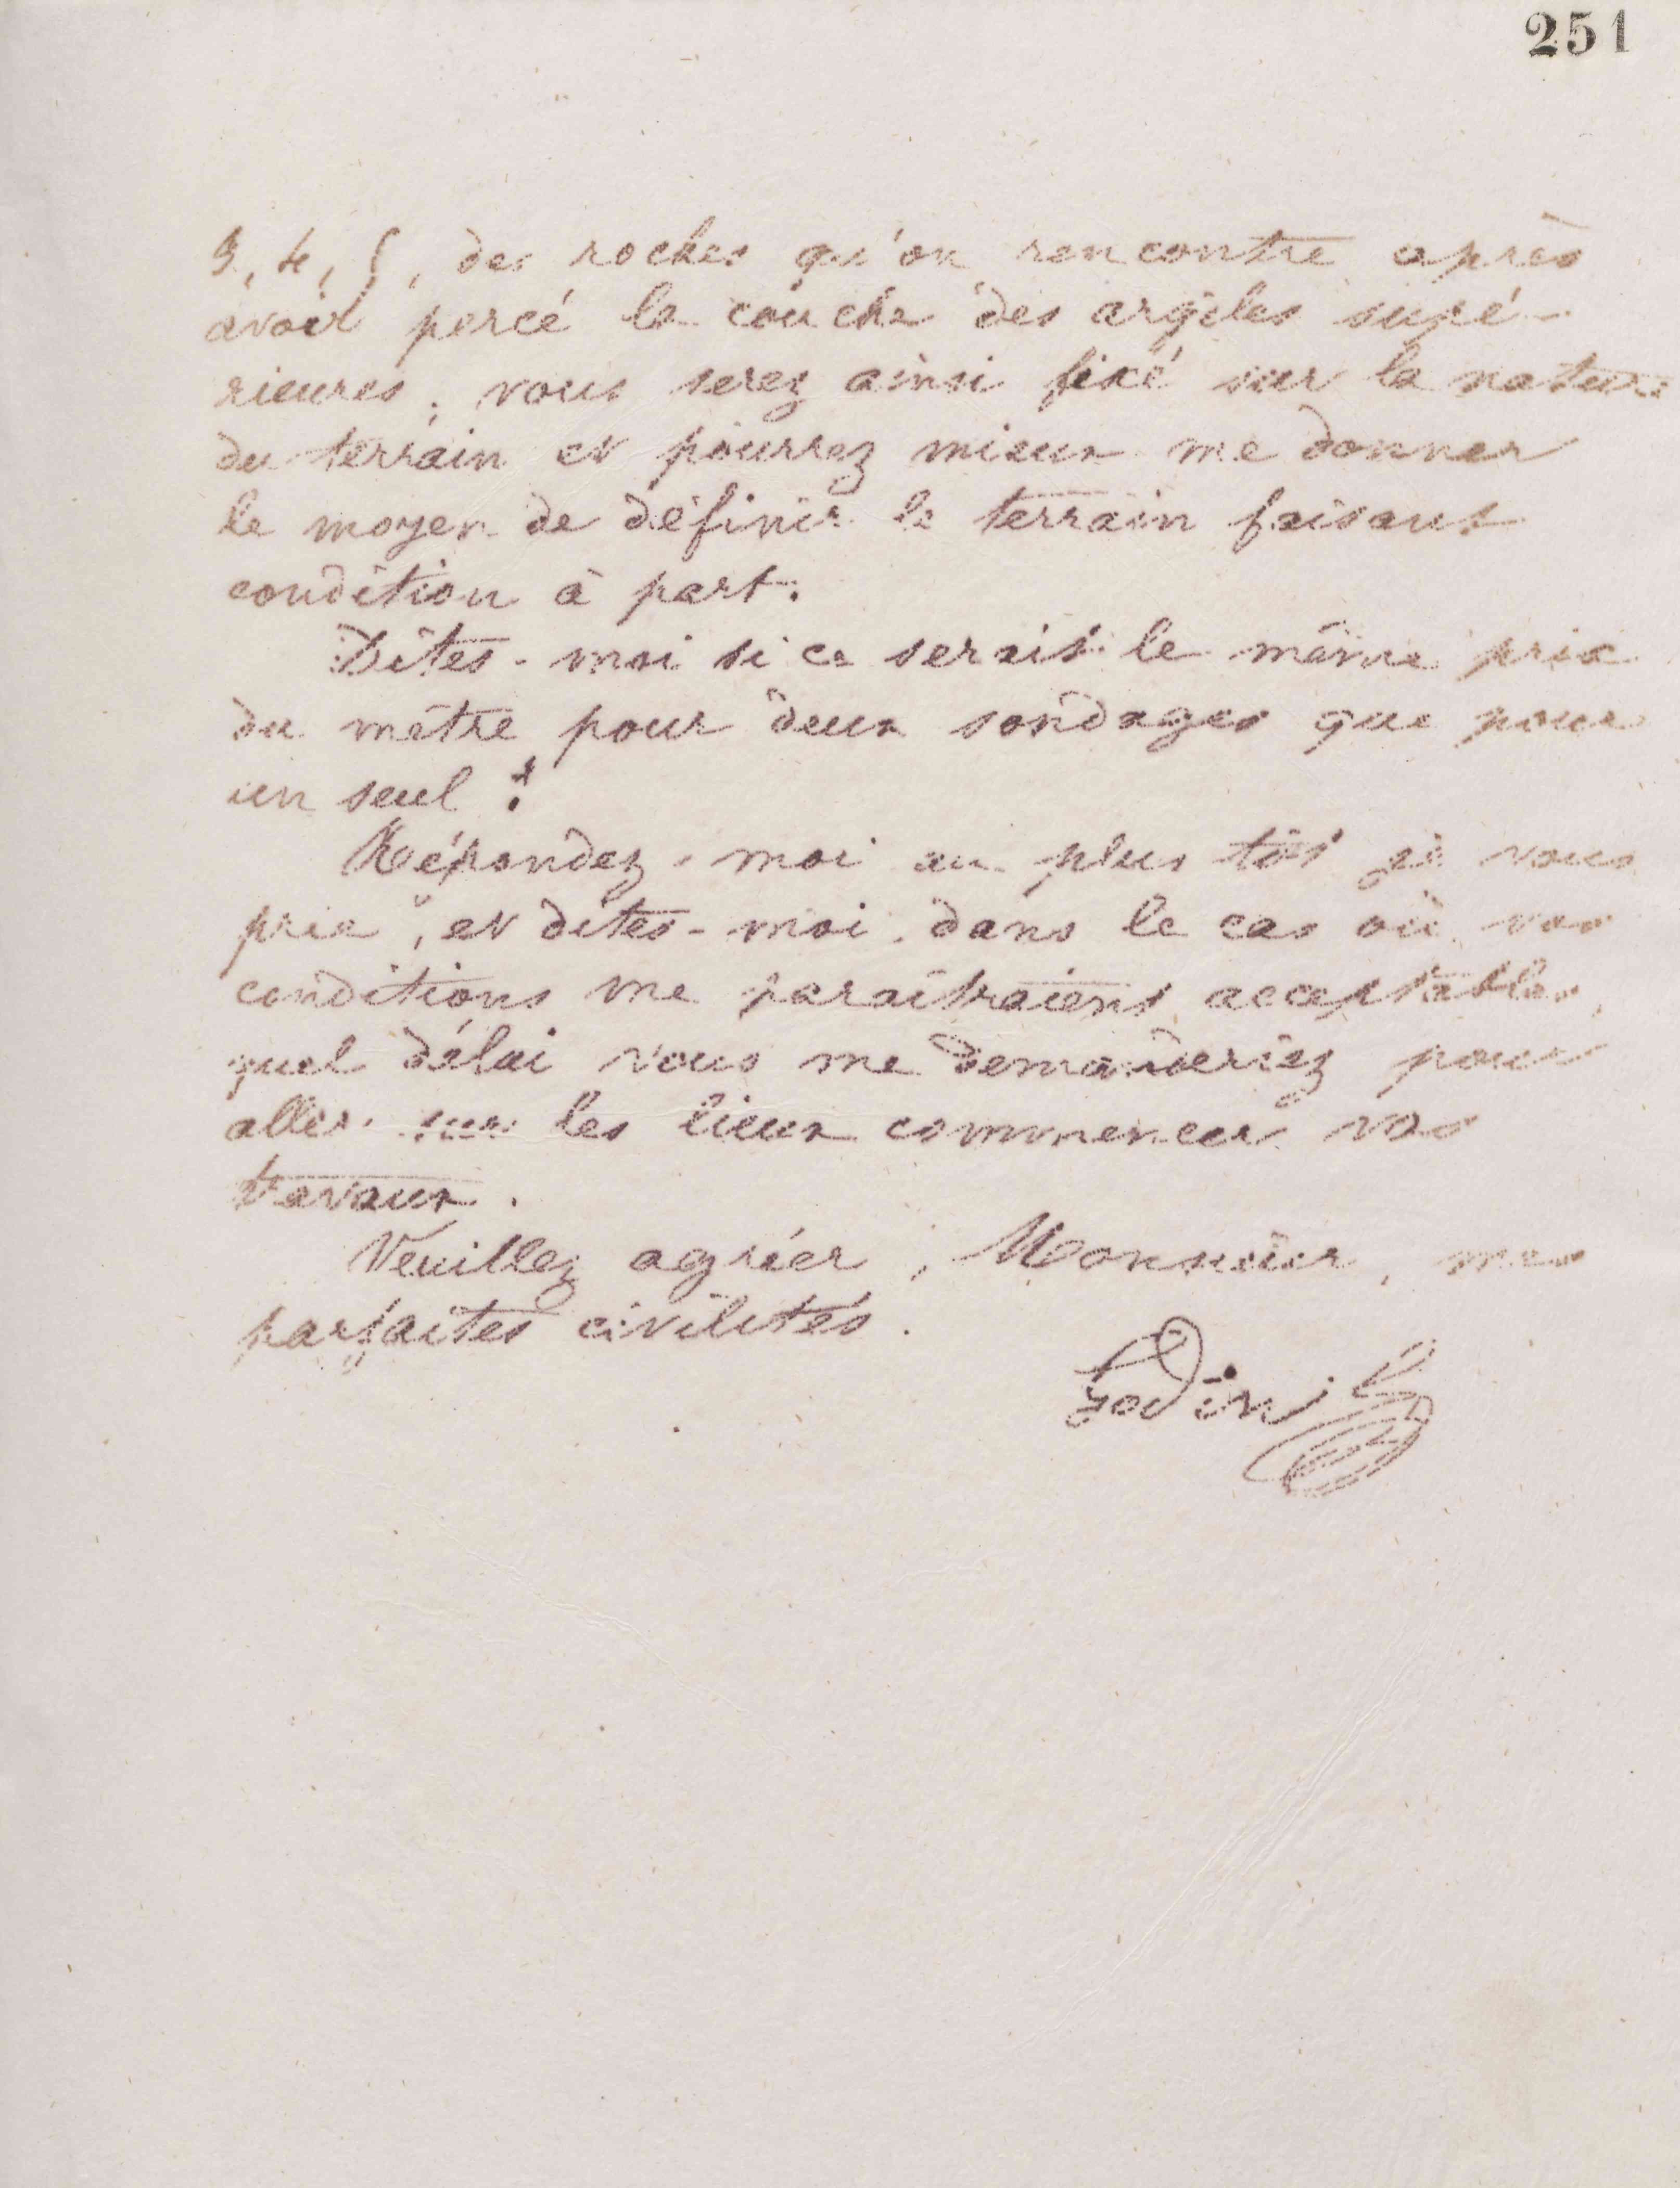 251
3, 4, 5, des roches qu'on rencontre après
avoir percé la couche des argiles supé-
rieures ; vous serez ainsi fixé sur la nature
du terrain et pourrez mieux me donner
le moyen de définir le terrain faisant
condition à part.
Dites-moi si ce serait le même prix
du mètre pour deux sondages que pour
un seul ?
Répondez-moi au plus tôt je vous
prie, et dites-moi, dans le cas où vos
conditions me paraîtraient acceptables,
quel délai vous me demanderiez pour
aller sur les lieux commencer vos
travaux.
Veuillez agréer, Monsieur, mes
parfaites civilités.
Godin